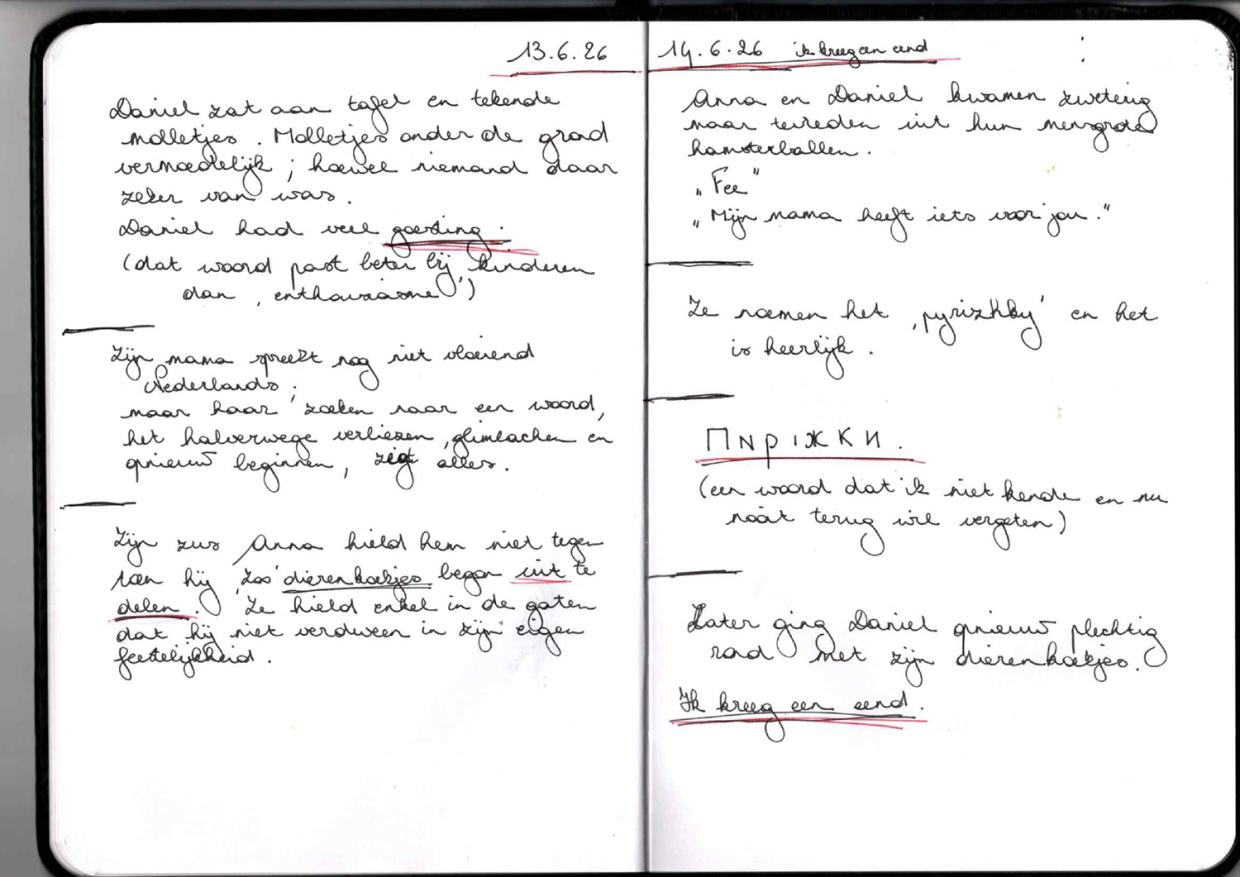 13.6.26
Daniel zat aan tafel en tekende
molletjes. Molletjes onder de grond
vermoedelijk ; hoewel niemand daar
zeker van was.
Daniel had veel goesting.
(dat woord past beter bij kinderen
dan 'enthousiasme')
Zijn mama spreekt nog niet vloeiend
Nederlands;
maar haar zoeken naar een woord,
het halverwege verliezen, glimlachen en
opnieuw beginnen, zegt alles.
Zijn zus Anna hield hem niet tegen
toen hij zoo dierenkoekjes begon uit te
delen. Ze hield enkel in de gaten
dat hij niet verdween in zijn eigen
feestelijkheid.
14.6.26 ik kreeg een eend
Anna en Daniel kwamen zweterig
maar tevreden uit hun mensgrote
hamsterballen.
„Fee"
„Mijn mama heeft iets voor jou."
Ze noemen het 'pyrizhky' en het
is heerlijk.
Пиріжки.
(een woord dat ik niet kende en nu
nooit terug wil vergeten)
Later ging Daniel opnieuw plechtig
rond met zijn dierenkoekjes.
Ik kreeg een eend.